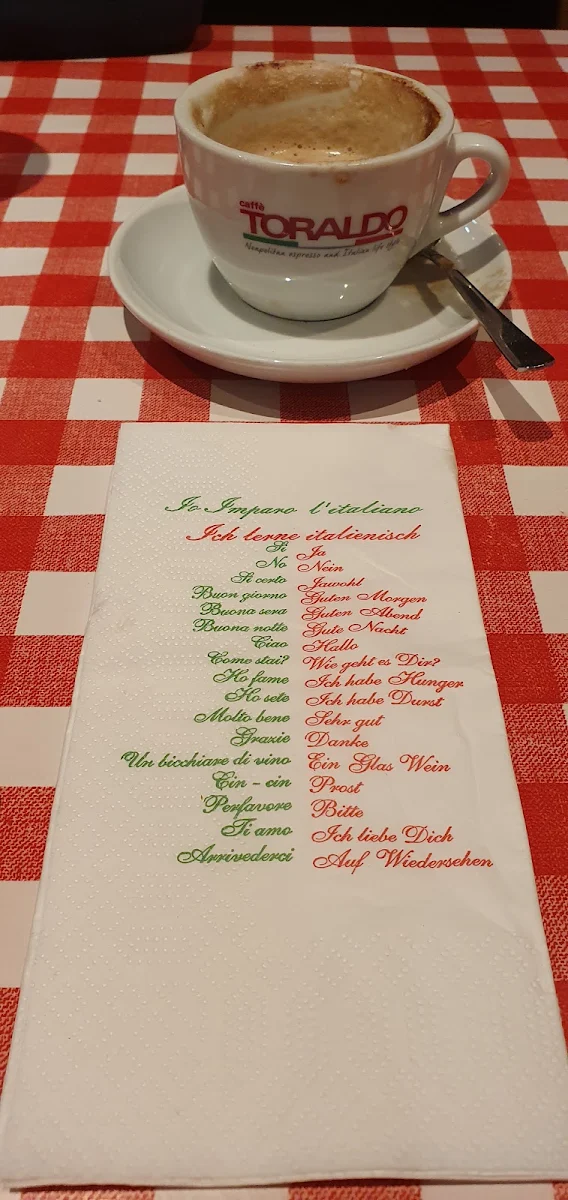 caffè
TORALDO
Neapolitan espresso and Italian life style
Io Imparo l'italiano
Ich lerne italienisch
Si Ja
No Nein
Si certo Jawohl
Buon giorno Guten Morgen
Buona sera Guten Abend
Buona notte Gute Nacht
Ciao Hallo
Come stai? Wie geht es Dir?
Ho fame Ich habe Hunger
Ho sete Ich habe Durst
Molto bene Sehr gut
Grazie Danke
Un bicchiare di vino Ein Glas Wein
Cin - cin Prost
Perfavore Bitte
Ti amo Ich liebe Dich
Arrivederci Auf Wiedersehen